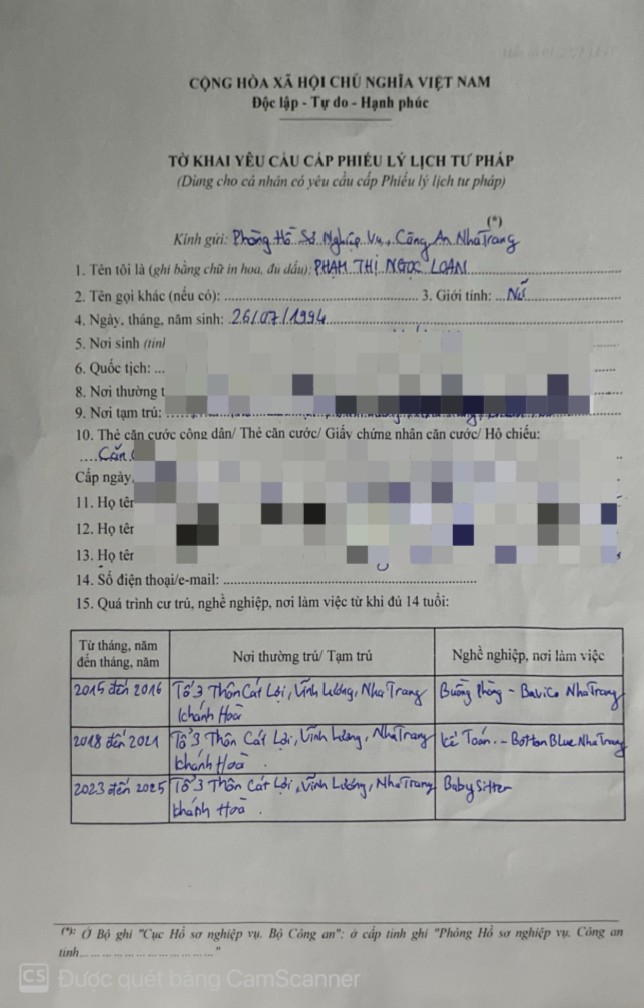 CỘNG HÒA XÃ HỘI CHỦ NGHĨA VIỆT NAM
Độc lập - Tự do - Hạnh phúc
TỜ KHAI YÊU CẦU CẤP PHIẾU LÝ LỊCH TƯ PHÁP
(Dùng cho cá nhân có yêu cầu cấp Phiếu lý lịch tư pháp)
(*)
Kính gửi: Phòng Hồ Sơ Nghiệp Vụ, Công An Nha Trang
1. Tên tôi là (ghi bằng chữ in hoa, đủ dấu): PHẠM THỊ NGỌC LOAN
2. Tên gọi khác (nếu có): 3. Giới tính: Nữ
4. Ngày, tháng, năm sinh: 26/07/1994
5. Nơi sinh (tỉnh
6. Quốc tịch:
8. Nơi thường t
9. Nơi tạm trú:
10. Thẻ căn cước công dân/ Thẻ căn cước/ Giấy chứng nhận căn cước/ Hộ chiếu:
Căn
Cấp ngày
11. Họ tên
12. Họ tên
13. Họ tên
14. Số điện thoại/e-mail:
15. Quá trình cư trú, nghề nghiệp, nơi làm việc từ khi đủ 14 tuổi:
Từ tháng, năm đến tháng, năm | Nơi thường trú/ Tạm trú | Nghề nghiệp, nơi làm việc
2015 đến 2016 | Tổ 3 Thôn Cát Lợi, Vĩnh Lương, Nha Trang Khánh Hoà | Buồng Phòng - Bavico Nha Trang
2018 đến 2021 | Tổ 3 Thôn Cát Lợi, Vĩnh Lương, Nha Trang Khánh Hoà. | Kế Toán - Botton Blue Nha Trang
2023 đến 2025 | Tổ 3 Thôn Cát Lợi, Vĩnh Lương, Nha Trang Khánh Hoà. | Baby Sitter
(*): Ở Bộ ghi "Cục Hồ sơ nghiệp vụ, Bộ Công an"; ở cấp tỉnh ghi "Phòng Hồ sơ nghiệp vụ, Công an
tỉnh.............................."
CS Được quét bằng CamScanner